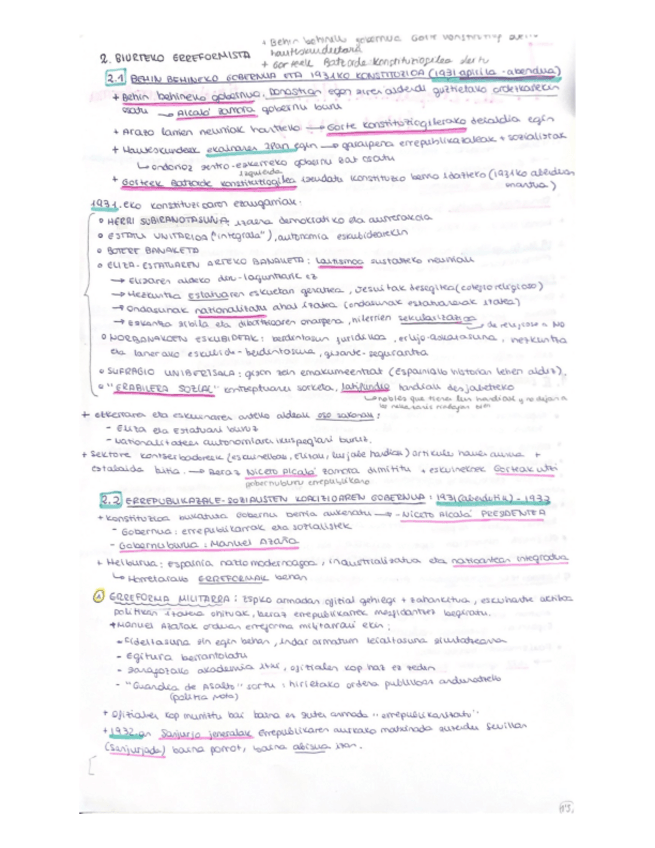 + Behin behineko gobernua Gorte
2. BIURTEKO ERREFORMISTA hauteskundeetara
+ Gorteek Batzorde Konstituziogilea
2.1 BEHIN BEHINEKO GOBERNUA ETA 1931KO KONSTITUZIOA (1931 apirila - abendua)
+ Behin behineko gobernua, Donostian egon ziren alderdi guztietako ordezkariekin
osatu → Alcalá Zamora gobernu buru
+ Arazo larrien neurriak hartzeko → Gorte konstituziogilerako deialdia egin
+ Hauteskundeak ekainaren 28an egin → garaipena errepublikazaleak + sozialistak
↳ ondorioz zentro-ezkerreko gobernu bat osatu
izquierda
+ Gorteek Batzorde konstituziogilea izendatu konstituzio berria idazteko (1931ko abenduan
onartua)
1931.eko konstituzioaren ezaugarriak:
• HERRI SUBIRANOTASUNA, izaera demokratiko eta aurrerakoia
• ESTATU UNITARIOA ("integrala"), autonomia eskubidearekin
• BOTERE BANAKETA
• ELIZA-ESTATUAREN ARTEKO BANAKETA: laizismoa sustatzeko neurriak
→ Elizaren aldeko diru-laguntzarik ez
→ Hezkuntza estatuaren eskuetan geratzea, Jesuitak desegitea (colegio religioso)
→ Ondasunak nationalitatu ahal izatea (ondasunak estatuarenak izatea)
→ Ezkontza zibila eta dibortzioaren onarpena, hilerrien sekularizatzea
↳ de religioso a NO
• NORBANAKOEN ESKUBIDEAK: berdintasun juridikoa, erlijio-askatasuna, hezkuntza
eta lanerako eskubide-berdintasuna, gizarte-segurantza
• SUFRAGIO UNIBERTSALA: gizon zein emakumeentzat (Espainiako historian lehen aldiz).
• "ERABILERA SOZIAL" kontzeptuaren sorkera, latifundio handiak desjabetzeko
↳ nobles que tiene lur handiak y no dejan a
+ ezkerraren eta eskuinaren arteko aldeak oso sakonak:
- Eliza eta Estatuari buruz
- Nationalitateen autonomiaren ikuspegiari buruz.
+ Sektore kontserbadoreek (eskuinekoak, Elizak, lurjabe handiak) artikulu hauen aurka +
eztabaida bizia → Beraz Niceto Alcalá Zamora dimititu + eskuinekoek Gorteak utzi
gobernuburu errepublikano
2.2 ERREPUBLIKAZALE-SOZIALISTEN KOALIZIOAREN GOBERNUA: 1931(abendutik) - 1933
+ Konstituzioa bukatuta gobernu berria aukeratu → - NICETO ALCALÁ PRESIDENTEA
- Gobernua: errepublikarrak eta sozialistek
- Gobernuburua: MANUEL AZAÑA
+ Helburua: Espainia nazio modernoagoa, industrializatua eta nazioartean integratua
↳ Horretarako ERREFORMAK behar
A ERREFORMA MILITARRA: Espainiko armadan ofizial gehiegi + zaharkitua, eskuhartze aktiboa
politikan izatera ohituak, beraz errepublikarrek mesfidantzaz begiratu.
+ Manuel Azañak orduan erreforma militarrari ekin:
- Fideltasuna zin egin behar, indar armatuen leialtasuna ziurtatzearren
- Egitura berrantolatu
- Zaragozako akademia itxi, ofizialen kop haz ez zedin
- "Guardia de Asalto" sortu: hirietako ordena publikoan arduratzeko
(polizia mota)
+ Ofizialen kop murriztu bai baina ez zuten armada "errepublikanizatu".
+ 1932.an Sanjurjo jeneralak Errepublikaren aurkako matxinada zuzendu Sevillan
(Sanjurjada) baina porrot, baina abisua izan.